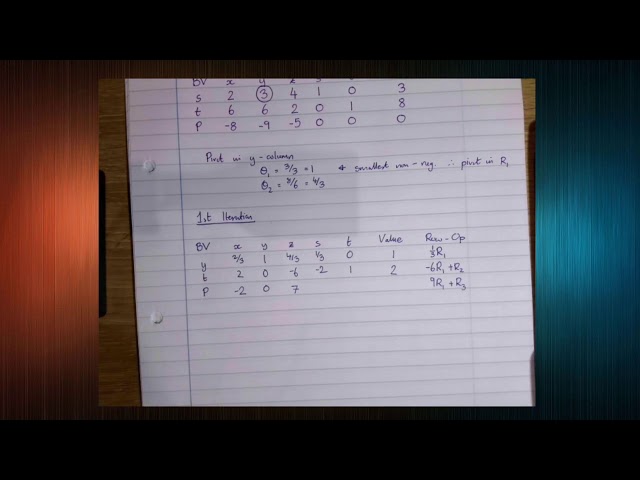 BV x y z s
s 2 3 4 1 0 3
t 6 6 2 0 1 8
P -8 -9 -5 0 0 0
Pivot in y-column
θ₁ = 3/3 = 1 smallest non-neg. ∴ pivot in R₁
θ₂ = 8/6 = 4/3
1st Iteration
BV x y z s t Value Row-Op
y 2/3 1 4/3 1/3 0 1 1/3R₁
t 2 0 -6 -2 1 2 -6R₁+R₂
P -2 0 7 9R₁+R₃